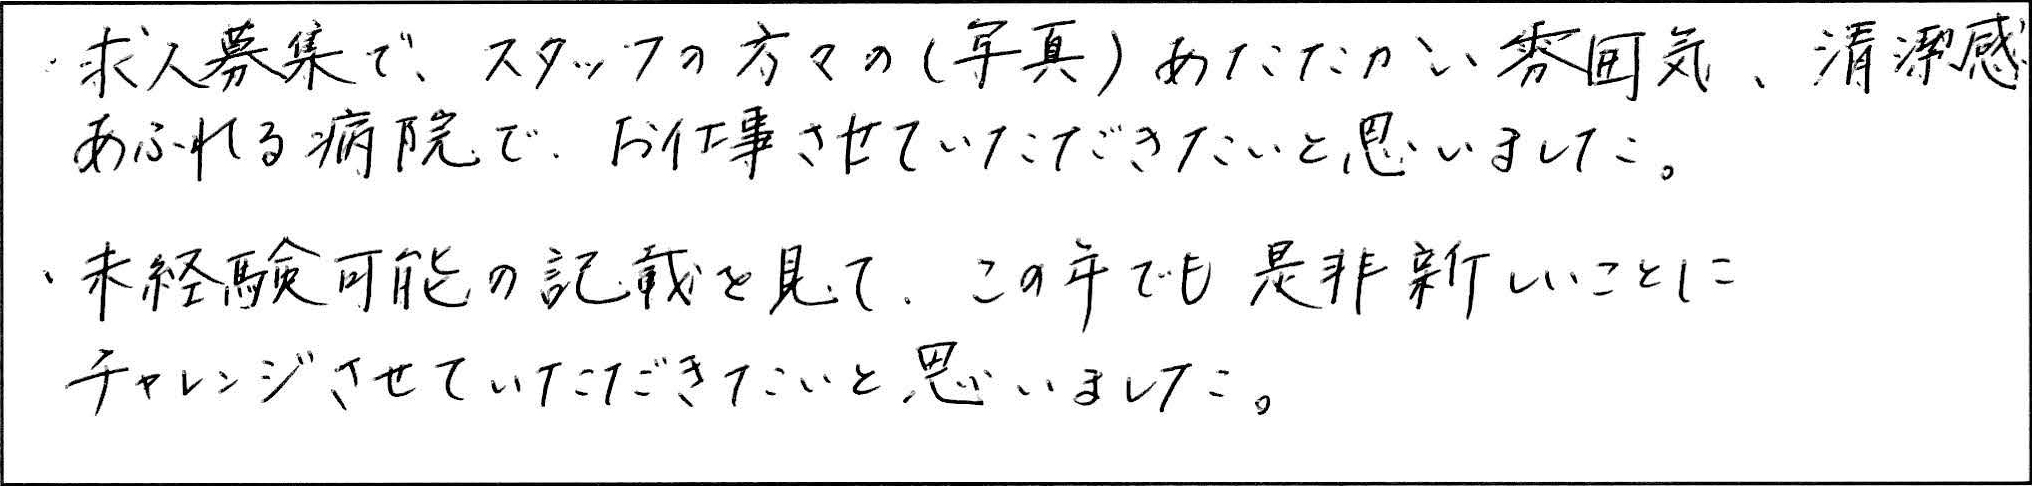 ・求人募集で、スタッフの方々の(写真)あたたかい雰囲気、清潔感
あふれる病院で、お仕事させていただきたいと思いました。
・未経験可能の記載を見て、この年でも是非新しいことに
チャレンジさせていただきたいと思いました。